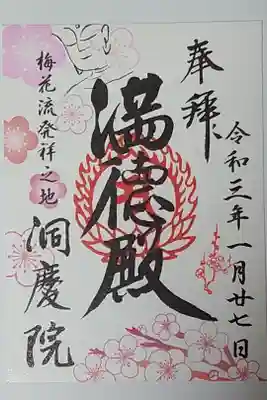 奉拝
令和三年一月廿七日
満徳殿
梅花流発祥之地
洞慶院